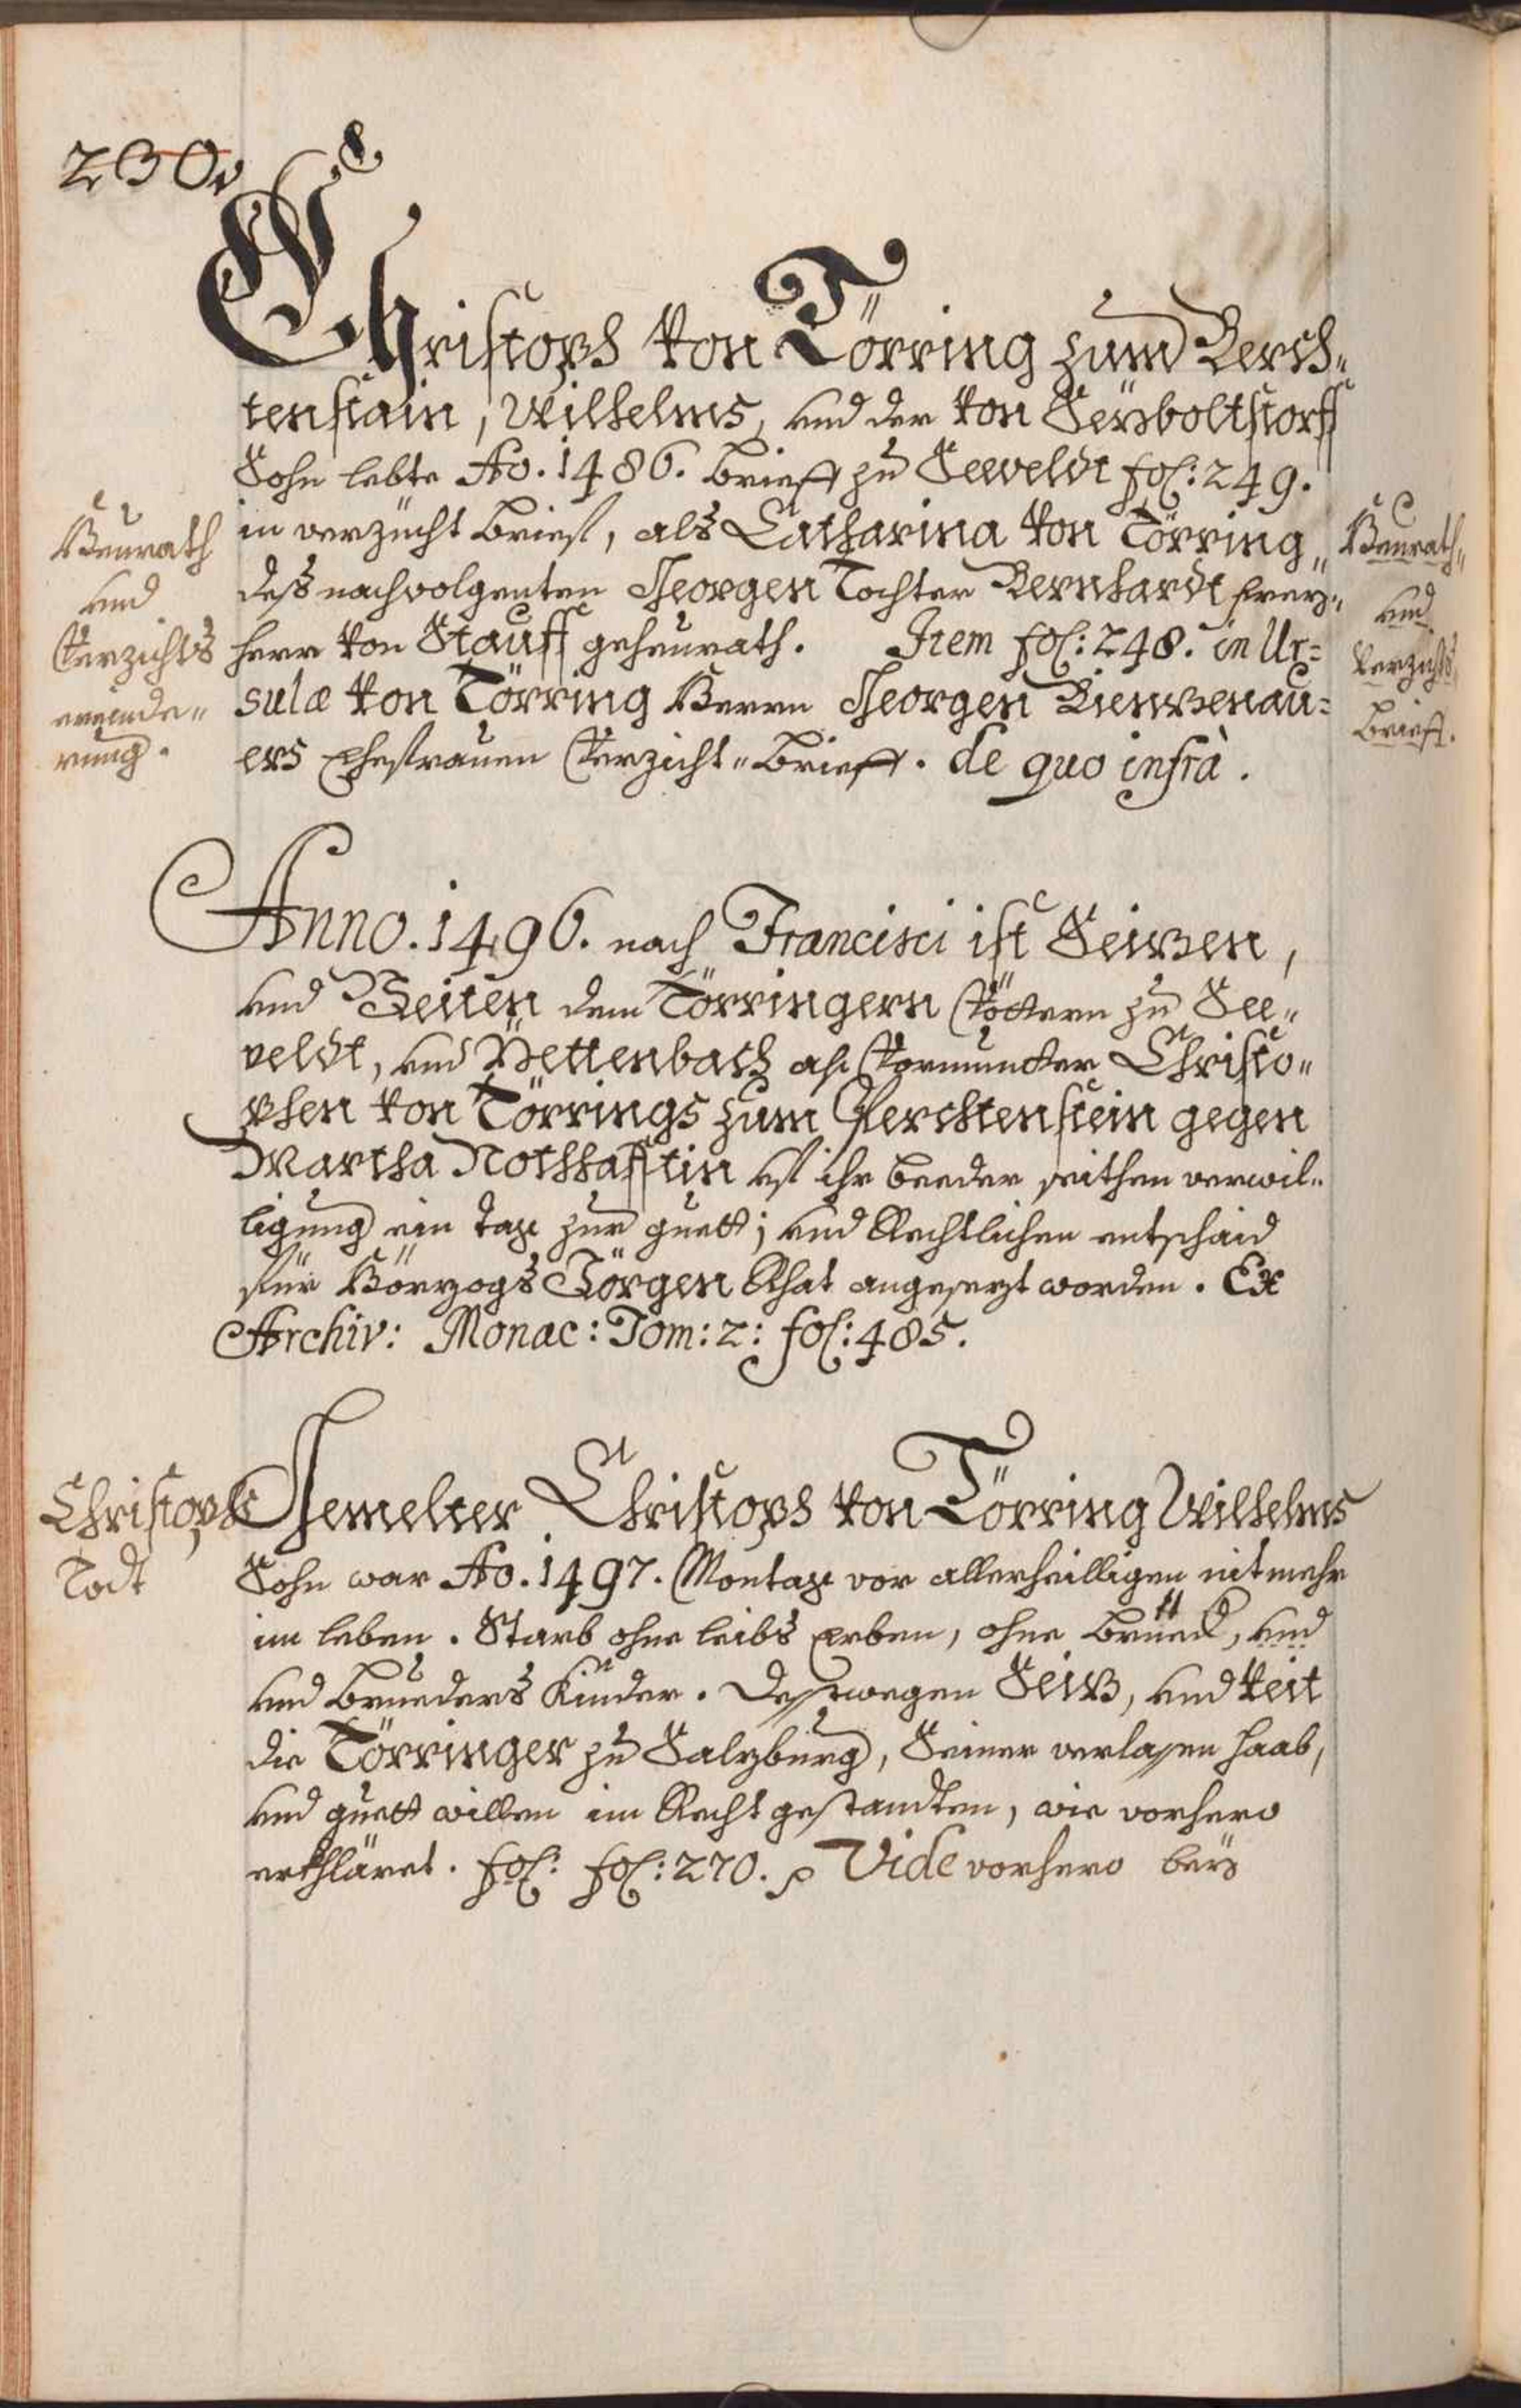 230v
Christoph von Törring zum Perch„
tenstain, Wilhelms, und der von Seyboltstorff
Sohn lebte Ao. 1486. brieff zu Seeveldt fol: 249.
in verzücht brief, als Catharina von Törring„
deß nachvolgenten Georgen Tochter Bernhardt frey„
herr von Stauff geheurath. Item fol: 248. in Ur=
sulæ von Törring Herrn Georgen Pienzenau=
ers Ehefrauen Verzicht„brieff. de quo infrà.
Heurath
und
Verzichts
erginde„
rung.
Heurath„
und
Verzichts„
brieff.
Anno. 1496. nach Francisci ist Seizen,
und Veiten dem Törringern Vöttern zu See„
veldt, und Pettenbach als Vormunder Christo„
phen von Törrings zum Perchtenstein gegen
Martha Nothhafftin uf ihr beeder seithen verwil„
ligung ein tag zur guett; und Rechtlichen entschaid
für Hörzogs Görgen Rhat angesezt worden. Ex
Archiv: Monac: Tom: 2: fol: 485.
Christophs
Todt
Gemelter Christoph von Törring Wilhelms
Sohn war Ao. 1497. Montag vor allerheilligen nit mehr
im leben. Starb ohne leibs Erben, ohne brüed, und
und brueders Kinder. Deßwegen Seiz, und Veit
die Törringer zu Salzburg, Seiner verlaßen haab,
und guett willen im Recht gestandten, wie vorhero
erkhläret. fol: fol: 270. p Vide vorhero bey